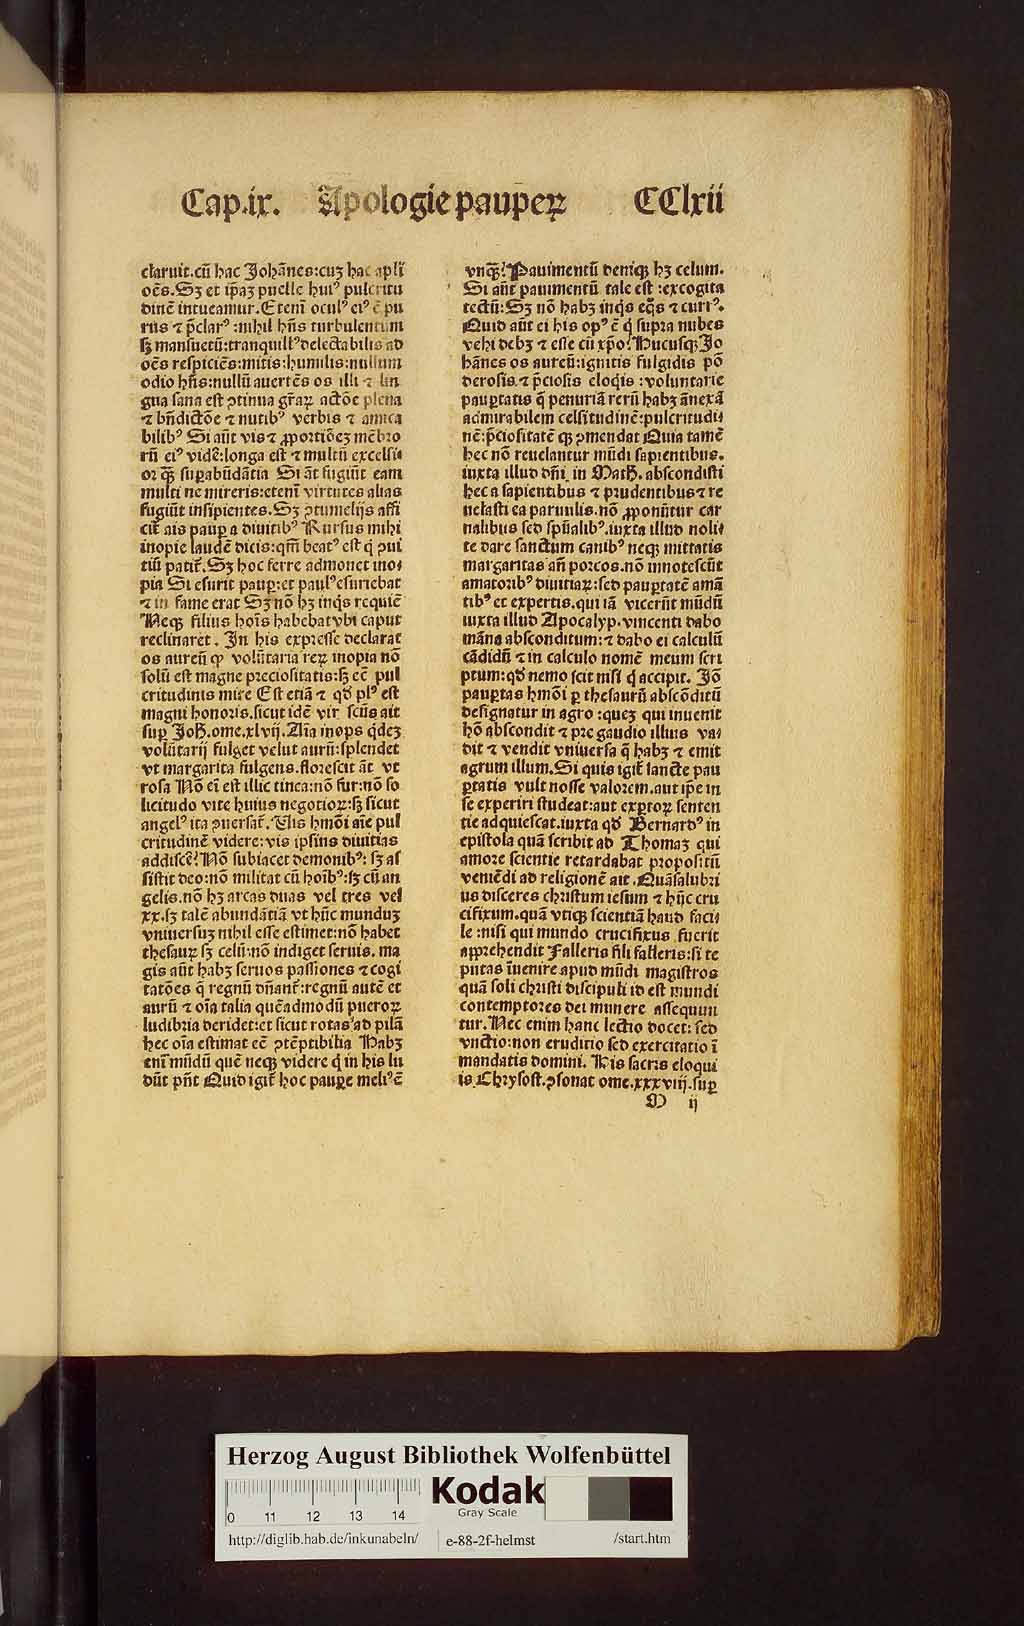 Cap.ix. Apologie pauperꝝ CClxii
claruit.cū hac Johānes:cuꝫ hac apłi
oēs.Sꝫ et ip̄aꝫ puelle huiꝰ pulcritu
dinē intueamur.Etenī oculꝰ eiꝰ ē pu
rus ⁊ p̄clarꝰ:nihil hn̄s turbulentum
sꝫ mansuetū:tranquillꝰ delectabilis ad
oēs respiciēs:mitis:humilis:nullum
odio hn̄s:nullū auertēs os illi ⁊ lin
gua sana est ꝯtinua gr̄aꝝ actōe plena
⁊ bn̄dictōe ⁊ nutibꝰ verbis ⁊ amica
bilibꝰ Si aūt vis ⁊ ꝓportiōeꝫ mēbro
rū eiꝰ vidē:longa est ⁊ multū excelsi⸗
or qꝫ suꝑabūdātia Si āt fugiūt eam
multi ne mireris:etenī virtutes alias
fugiūt insipientes.Sꝫ ꝯtumelijs affi
cit̄ ais pauꝑ a diuitibꝰ Rursus mihi
inopie laudē dicis:qm̄ beatꝰ est q̇ ꝯui
tiū patit̄.Sꝫ hoc ferre admonet ino⸗
pia Si esurit pauꝑ:et paulꝰ esuriebat
⁊ in fame erat Sꝫ nō hꝫ inq̇s requiē
Neqꝫ filius hoīs habebat vbi caput
reclinaret. In his expresse declarat
os aureū ꝙ volūtaria reꝝ inopia nō
solū est magne preciositatis:sꝫ eē pul
critudinis mire Est etiā ⁊ qd̄ plꝰ est
magni honoris.sicut idē vir scūs ait
suꝑ Joh̄.ome.xlvij.Aīa inops q̇deꝫ
volūtarij fulget velut aurū:splendet
vt margarita fulgens.florescit āt vt
rosa Nō eī est illic tinea:nō fur:nō so
licitudo vite huius negotioꝝ:sꝫ sicut
angelꝰ ita ꝯuersat̄.Vis hmōi aīe pul
critudinē videre:vis ipsius diuitias
addiscē?Nō subiacet demonibꝰ:sꝫ as
sistit deo:nō militat cū hoībꝰ:sꝫ cū an
gelis.nō hꝫ arcas duas vel tres vel
xx.sꝫ talē abundātiā vt hūc munduꝫ
vniuersuꝫ nihil esse estimet:nō habet
thesauꝝ sꝫ celū:nō indiget seruis. ma
gis aūt habꝫ seruos passiones ⁊ cogi
tatōes q̄ regnū dn̄ant̄:regnū autē et
aurū ⁊ oīa talia quēadmodū pueroꝝ
ludibria deridet:et sicut rotas ad pilā
hec oīa estimat eē ꝯtēptibilia Habꝫ
enī mūdū quē neqꝫ videre q̇ in his lu
dūt pn̄t Quid igit̄ hoc pauꝑe meliꝰ ē
vnqꝫ?Pauimentū deniqꝫ hꝫ celum.
Si aūt pauimentū tale est:excogita
tectū:Sꝫ nō habꝫ inq̇s eq̇s ⁊ currꝰ.
Quid aūt ei his opꝰ ē q̇ supra nubes
vehi debꝫ ⁊ esse cū xp̄o?Hucusqꝫ Jo
hānes os aureū:ignitis fulgidis pō
derosis ⁊ p̄ciosis eloqis :voluntarie
pauꝑtatis q̄ penuriā rerū habꝫ ānexā
admirabilem celsitudinē:pulcritudi⸗
nē:p̄ciositatē qꝫ ꝯmendat Quia tamē
hec nō reuelantur mūdi sapientibus.
iuxta illud dn̄i in Math̄. abscondisti
hec a sapientibus ⁊ prudentibus ⁊ re
uelasti ea paruulis.nō ꝓponūtur car
nalibus sed spūalibꝰ.iuxta illud noli⸗
te dare sanctum canibꝰ neqꝫ mittatis
margaritas an̄ porcos.nō innotescūt
amatoribꝰ diuitiaꝝ:sed pauꝑtatē amā
tibꝰ et expertis.qui iā vicerūt mūdū
iuxta illud Apocalyp.vincenti dabo
māna absconditum:⁊ dabo ei calculū
cādidū ⁊ in calculo nomē meum scri
ptum:qd̄ nemo scit nisi q̇ accipit. Jō
pauꝑtas hmōi ꝑ thesaurū abscōditū
designatur in agro :queꝫ qui inuenit
hō abscondit ⁊ pre gaudio illius va⸗
dit ⁊ vendit vniuersa q̄ habꝫ ⁊ emit
agrum illum.Si quis igit̄ sancte pau
ꝑtatis vult nosse valorem.aut ip̄e in
se experiri studeat:aut exꝑtoꝝ senten
tie adquiescat.iuxta qd̄ Bernardꝰ in
epistola quā scribit ad Thomaꝫ qui
amore scientie retardabat propositū
veniēdi ad religionē ait.Quāsalubri
us disceres christum iesum ⁊ hūc cru
cifixum.quā vtiqꝫ scientiā haud faci⸗
le :nisi qui mundo crucifixus fuerit
apprehendit Falleris fili falleris:si te
putas īuenire apud mūdi magistros
quā soli christi discipuli id est mundi
contemptores dei munere assequun
tur.Nec enim hanc lectio docet: sed
vnctio:non eruditio sed exercitatio ī
mandatis domini. His sacris eloqui
is Chrysost.ꝑsonat ome.xxxviij.suꝑ
M ij
Herzog August Bibliothek Wolfenbüttel
0 11 12 13 14
Kodak
Gray Scale
http://diglib.hab.de/inkunabeln/ e-88-2f-helmst /start.htm